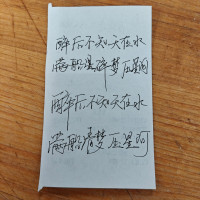 醉后不知天在水
满船星醉梦压星河
醉后不知天在水
满船清梦压星河